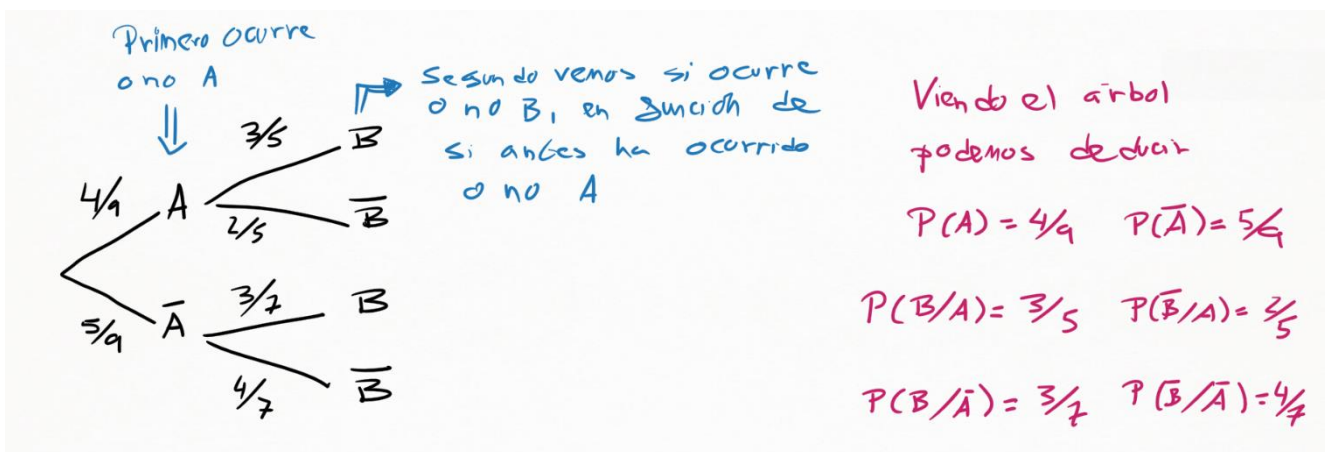 Primero ocurre
o no A
Segundo vemos si ocurre
o no B, en función de
si antes ha ocurrido
o no A
4/9 A 3/5 B
2/5 B̅
5/9 A̅ 3/7 B
4/7 B̅
Viendo el árbol
podemos deducir
P(A) = 4/9 P(A̅) = 5/9
P(B/A) = 3/5 P(B̅/A) = 2/5
P(B/A̅) = 3/7 P(B̅/A̅) = 4/7